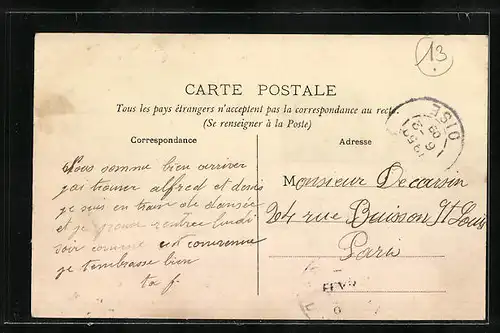 13
CARTE POSTALE
Tous les pays étrangers n'acceptent pas la correspondance au recto.
(Se renseigner à la Poste)
Correspondance
Adresse
OISE
Nous somme bien arriver
jai trouver alfred et denis
je suis en train de dansée
et je rentree lundi
soir comme est convenue
je tembrasse bien
ta f.
Monsieur Decaisin
24 rue Buisson St Louis
Paris